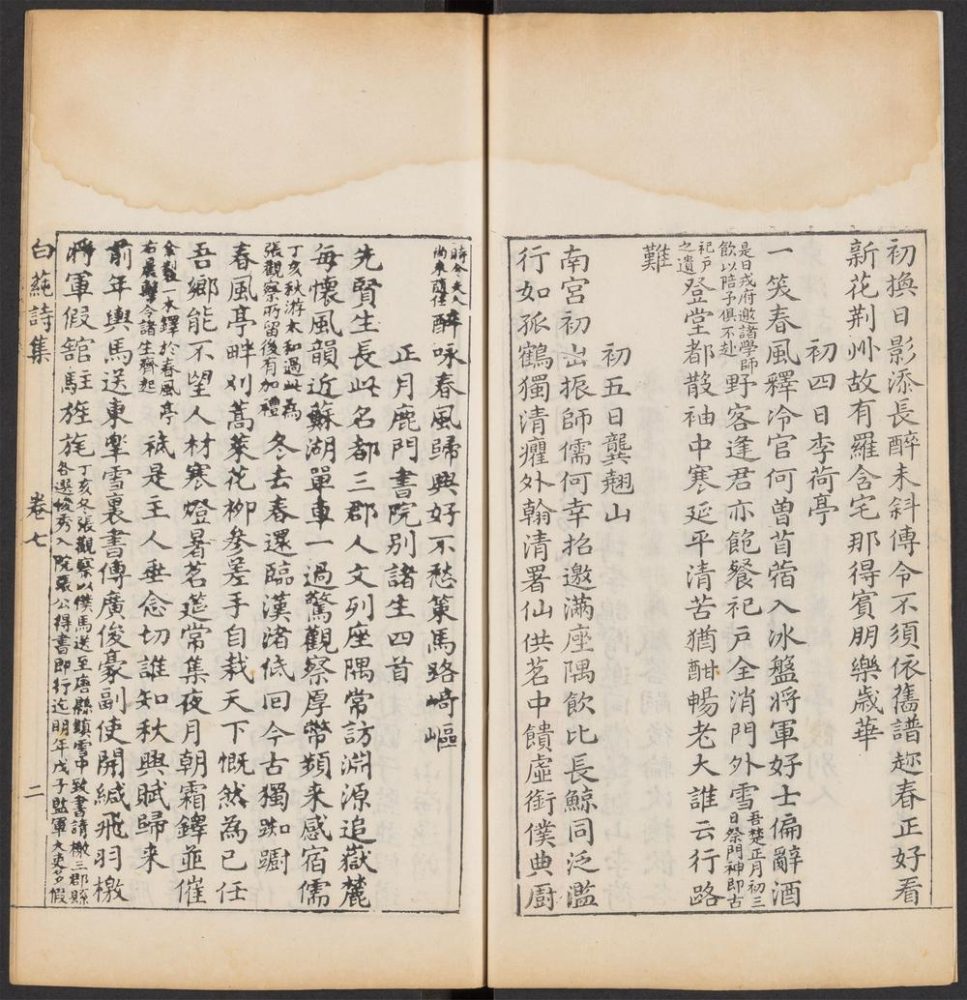 初換日影添長醉未斜傳令不須依舊譜趂春正好看
新花荆州故有羅含宅那得賓朋樂歲華
初四日李荷亭
一筴春風釋冷官何曽苜蓿入冰盤將軍好士偏辭酒
是日戎府邀諸學師
飲以陪予俱不赴
野客逢君亦飽餐祀戸全消門外雪
吾楚正月初三
日祭門神即古
祀戸
之遺
登堂都散袖中寒延平清苦猶酣暢老大誰云行路
難
初五日龔翹山
南宮初出振師儒何幸招邀滿座隅飲比長鯨同泛濫
行如孤鶴獨清癯外翰清署仙供茗中饋虛銜僕典廚
時令夫人
尚未隨任
醉咏春風歸興好不愁策馬路崎嶇
正月鹿門書院別諸生四首
先賢生長此名都三郡人文列座隅常訪淵源追嶽麓
每懷風韻近蘇湖單車一過驚觀察厚幣頻来感宿儒
丁亥秋游太和過此為
張觀察所留後有加禮
冬去春還臨漢渚低回今古獨踟躕
春風亭畔刈蒿萊花柳參差手自栽天下慨然為已任
吾鄉能不望人材寒燈暑茗筵常集夜月朝霜鐸並催
余製一木鐸於春風亭
右晨擊令諸生齊起
祇是主人垂念切誰知秋興賦歸来
前年輿馬送東聖雪裏書傳廣俊豪副使開緘飛羽檄
將軍假舘駐旌旄
丁亥冬張觀察以僕馬送至唐縣鎮雪中致書請檄三郡縣
各選俊秀入院張公得書即行迄明年戊子監軍大吏多假
白蒓詩集
卷七
二